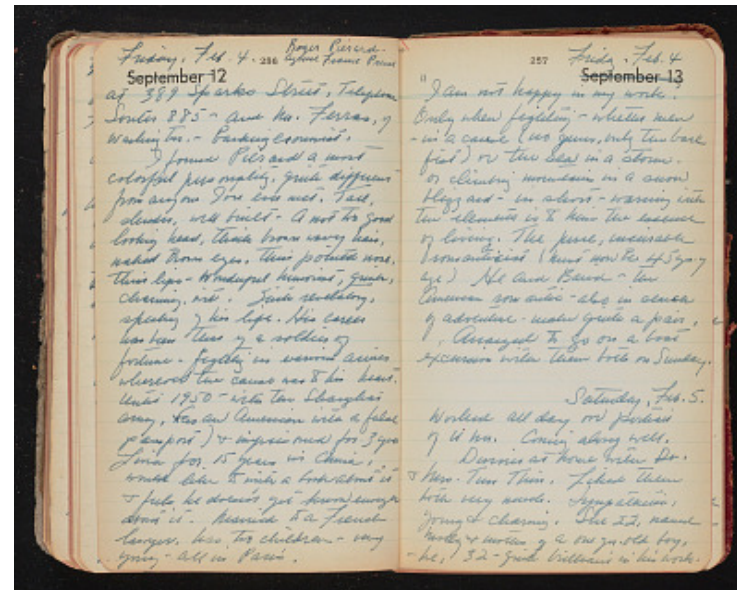 Friday, Feb. 4. 256 Roger Pierard
September 12
at 389 Sparks Street, Telephone
885 - and Mr. Ferras, of
Washington. - Banking economist.
I found Pierard a most
colorful personality, quite different
from anyone I've ever met. Tall,
slender, well built - A not too good
looking head, thick brown wavy hair,
naked brown eyes, thin pointed nose,
thin lips - Wonderful humorist,
charming,
speaking of his life. His career
has been that of a soldier of
fortune - fighting in various armies
wherever the cause was to his heart.
Until 1950 - with the Shanghai
army, (as an American with a false
passport) & imprisoned for 3 yrs
Lived for 15 years in China,
would like to write a book about it
& feels he doesn't yet know enough
about it. Married to a French
lawyer, has two children - very
young - all in Paris.
257 Friday, Feb. 4
September 13
"I am not happy in my work.
Only when fighting - whether men
- in a cause (no guns, only the bare
fist) or the sea in a storm -
or climbing mountains in a snow
blizzard - in short - warring with
the elements is to him the essence
of living. The pure, incurable
romanticist (must now be 45 yrs of
age) He and Baird - the
American romantic - also in search
of adventure - make quite a pair.
Arranged to go on a boat
excursion with them both on Sunday.
Saturday, Feb. 5.
Worked all day on portrait
of U Nu. Coming along well.
Dinner at home with Dr.
& Mrs. Tin Thin. Liked them
both very much. Sympathetic,
young & charming. She 22, named
Molly & mother of a one yr. old boy,
- he, 32 - quite brilliant in his work.